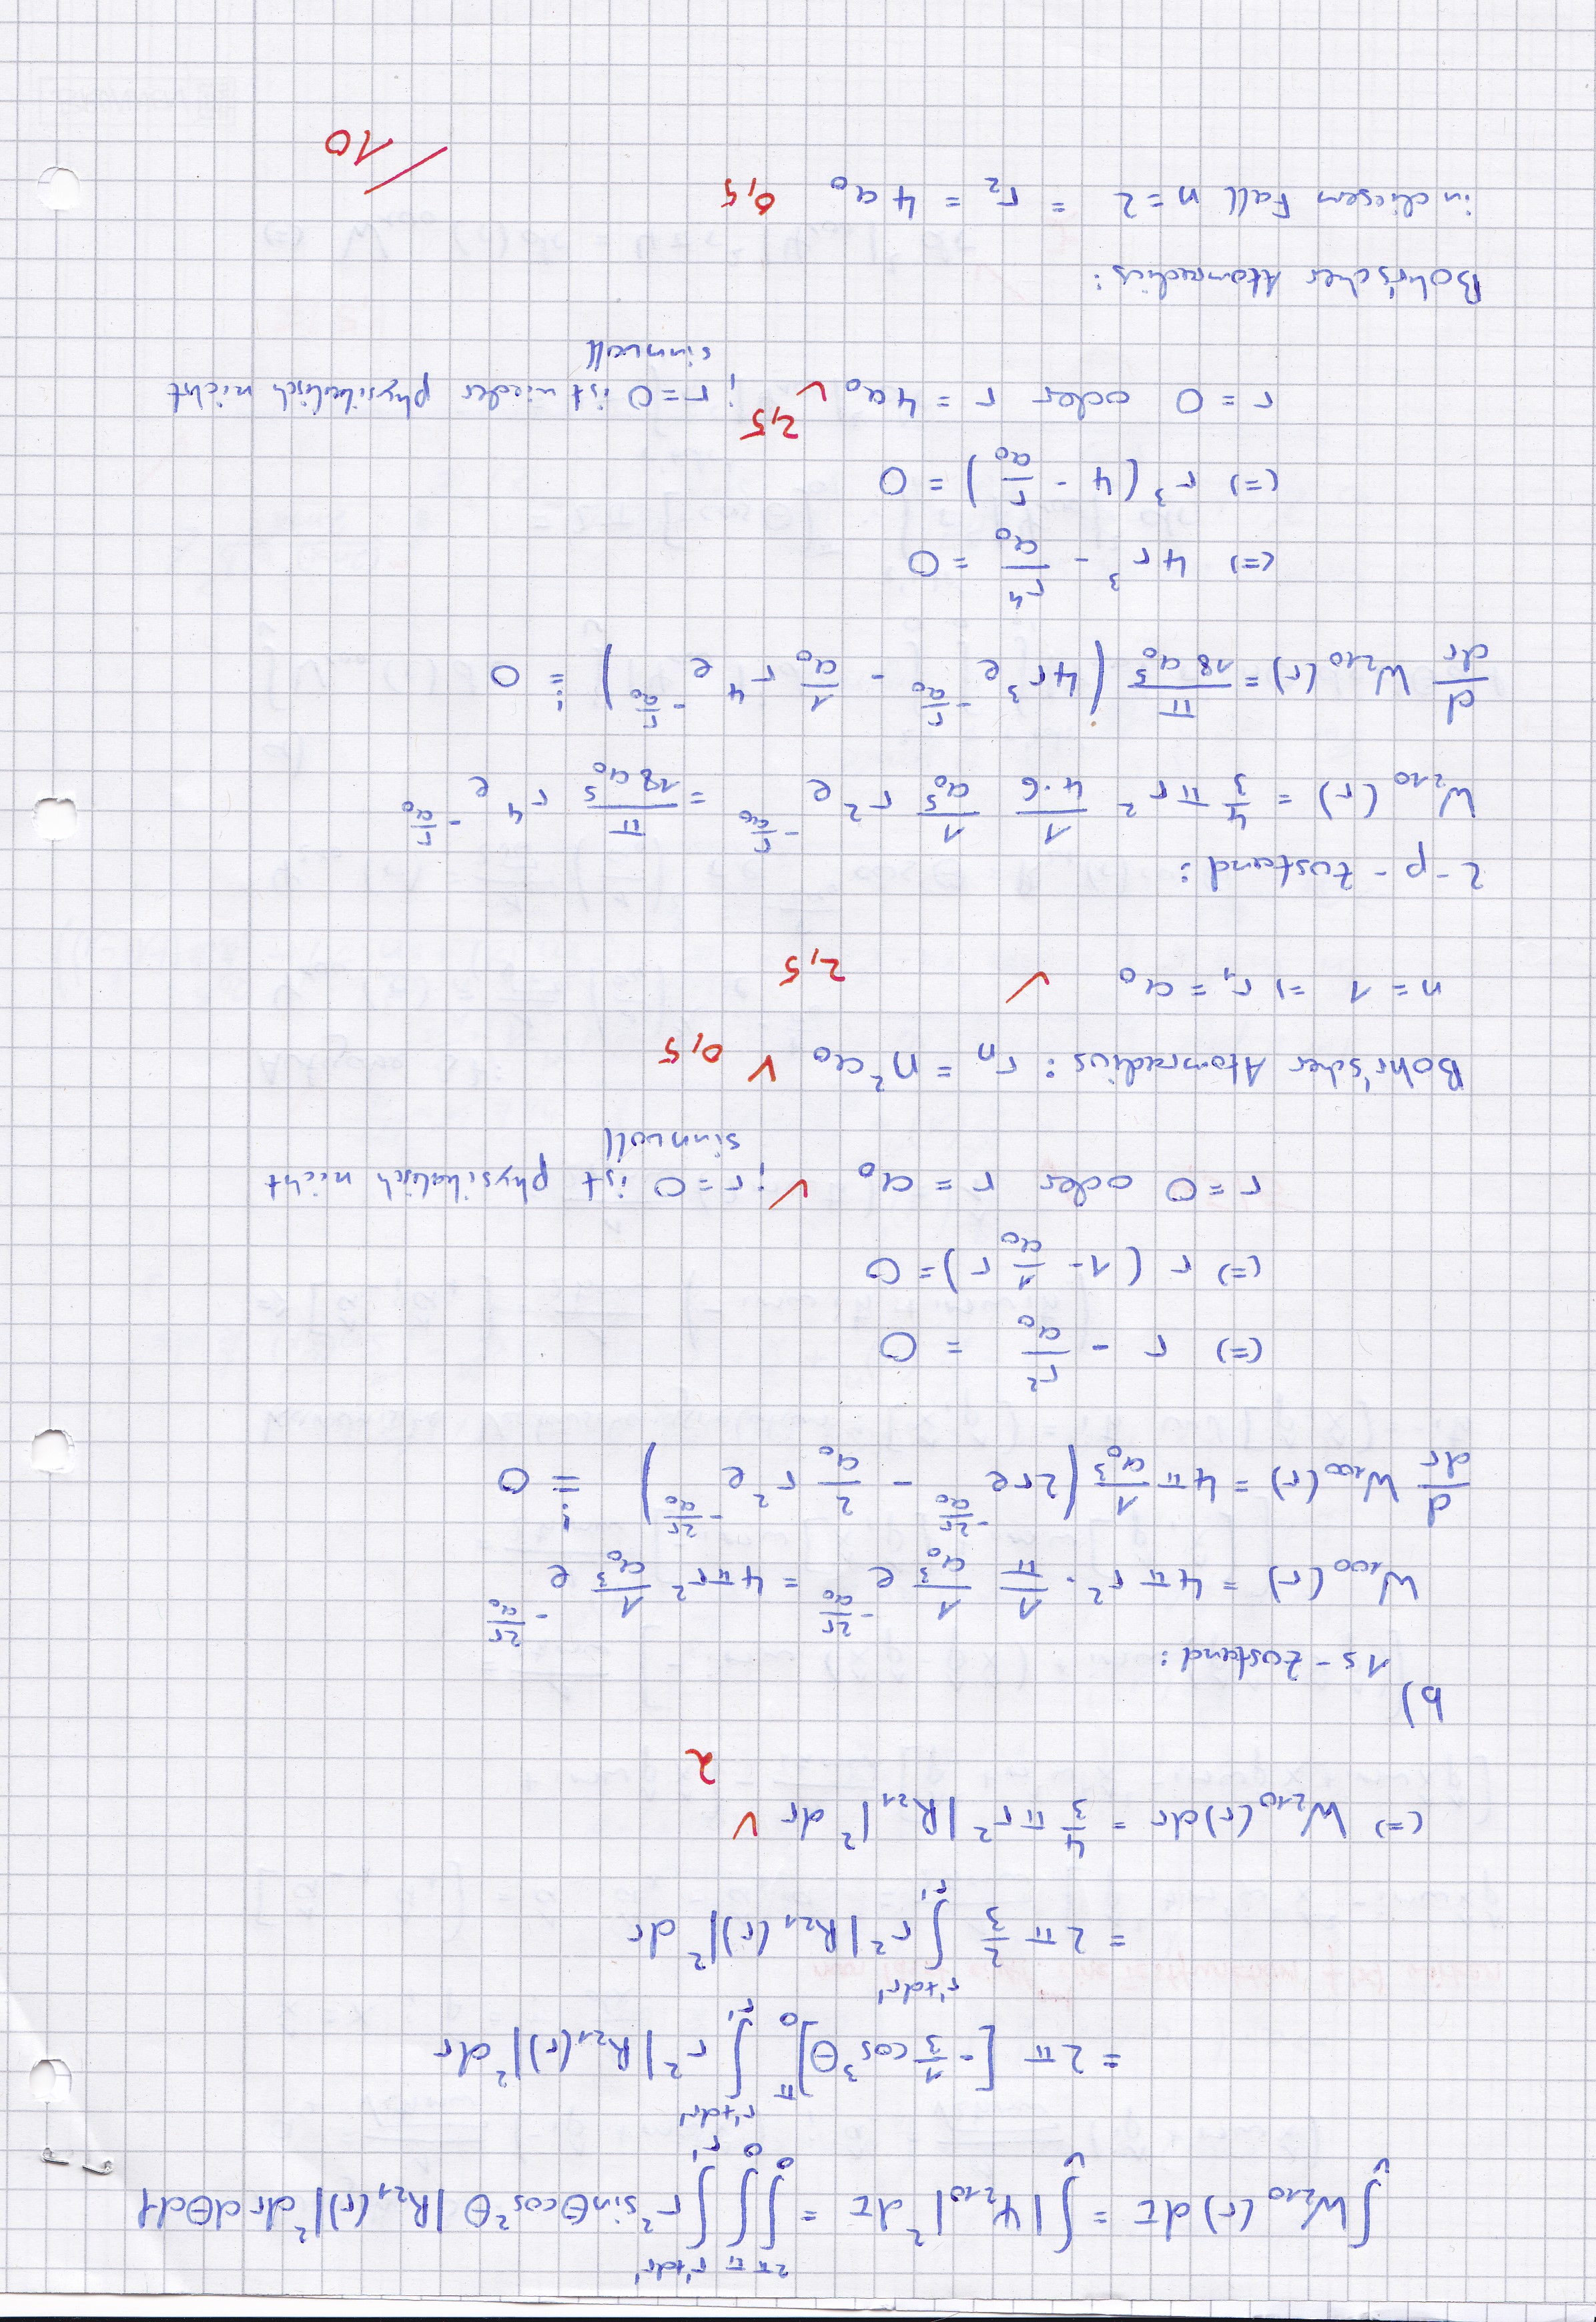 ∫_V W₂₁₀(r) dτ = ∫_V |Ψ₂₁₀|² dτ = ∫₀^{2π} ∫₀^π ∫_{r'}^{r'+dr'} r² sinθ cos²θ |R₂₁(r)|² dr dθ dφ
= 2π [-1/3 cos³θ]₀^π ∫_{r'}^{r'+dr'} r² |R₂₁(r)|² dr
= 2π 2/3 ∫_{r'}^{r'+dr'} r² |R₂₁(r)|² dr
(=) W₂₁₀(r) dr = 4/3 π r² |R₂₁|² dr ✓
2
b)
1s-Zustand:
W₁₀₀(r) = 4π r² · 1/π 1/a₀³ e^{-2r/a₀} = 4πr² 1/a₀³ e^{-2r/a₀}
d/dr W₁₀₀(r) = 4π 1/a₀³ (2r e^{-2r/a₀} - 2/a₀ r² e^{-2r/a₀}) =! 0
(=) r - r²/a₀ = 0
(=) r (1 - 1/a₀ r) = 0
r = 0 oder r = a₀ ✓ ; r = 0 ist physikalisch nicht
sinnvoll
Bohr'scher Atomradius: rₙ = n² a₀ ✓ 0,5
n = 1 => r₁ = a₀ ✓
2,5
2-p-Zustand:
W₂₁₀(r) = 4/3 π r² 1/(4·6) 1/a₀⁵ r² e^{-r/a₀} = π/(18 a₀⁵) r⁴ e^{-r/a₀}
d/dr W₂₁₀(r) = π/(18 a₀⁵) (4r³ e^{-r/a₀} - 1/a₀ r⁴ e^{-r/a₀}) =! 0
(=) 4r³ - r⁴/a₀ = 0
(=) r³ (4 - r/a₀) = 0
r = 0 oder r = 4a₀ ✓ 2,5 ; r = 0 ist wieder physikalisch nicht
sinnvoll
Bohr'scher Atomradius:
in diesem Fall n = 2 = r₂ = 4 a₀ 0,5
/10